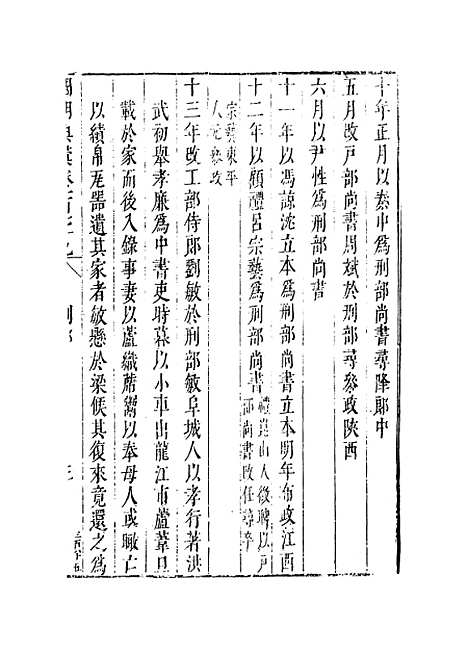 十年正月以秦中為刑部尚書尋降郎中
五月改戸部尚書周斌於刑部尋參政陝西
六月以尹性為刑部尚書
十一年以馮諒沈立本為刑部尚書立本明年布政江西
十二年以顧禮呂宗藝為刑部尚書禮崑山人徵聘以戸
部尚書改任尋卒
宗藝東平
人元參政
十三年改工部侍郎劉敏於刑部敏阜城人以孝行著洪
武初舉孝廉為中書吏時暮以小車出龍江市蘆葦旦
載於家而後入錄事妻以蘆織蓆鬻以奉母人或瞰亡
以績帛庖器遺其家者敏懸於梁俟其復來竟還之為
國朝典彙卷
刑部
三